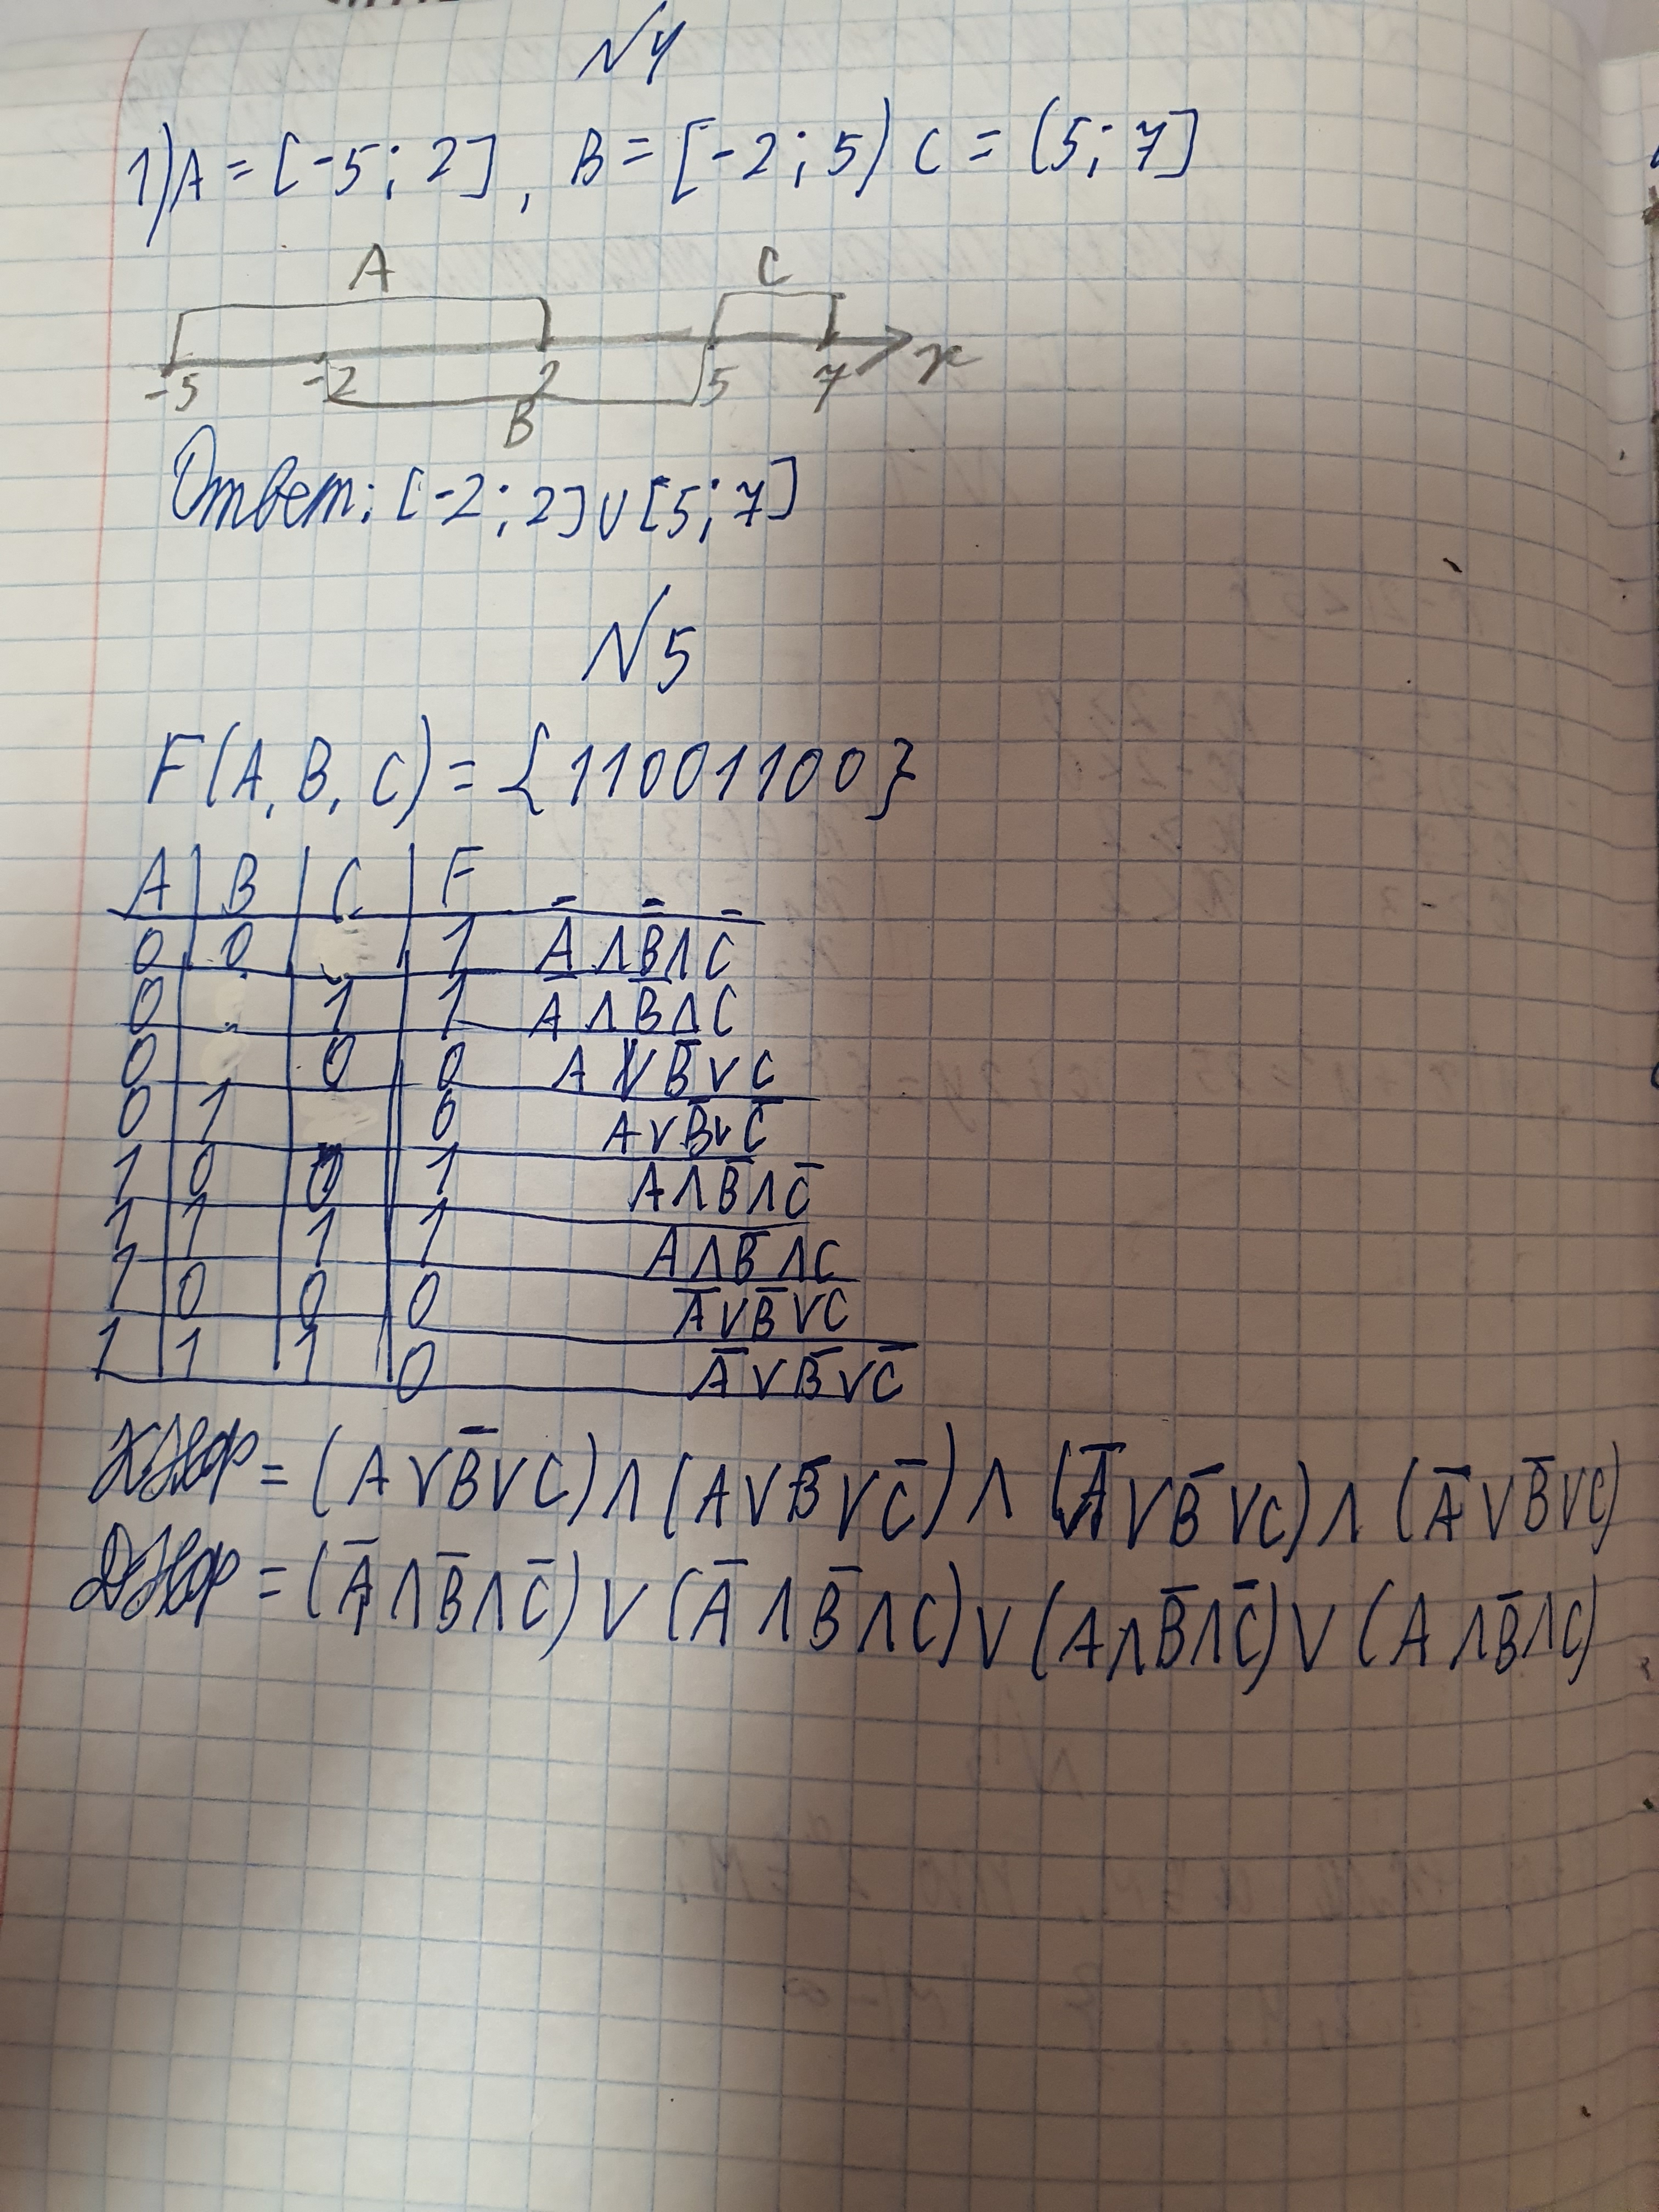 N4
1) A = [-5; 2], B = [-2; 5) C = (5; 7]
A C
-5 -2 2 5 7 x
B
Ответ: [-2; 2] ∪ [5; 7]
N5
F(A, B, C) = {11001100}
A B C F
0 0 1 A̅ ∧ B̅ ∧ C̅
0 1 1 A̅ ∧ B̅ ∧ C
0 0 0 A ∨ B̅ ∨ C
0 1 0 A ∨ B̅ ∨ C̅
1 0 0 1 A ∧ B̅ ∧ C̅
1 1 1 1 A ∧ B̅ ∧ C
1 0 0 0 A̅ ∨ B̅ ∨ C
1 1 1 0 A̅ ∨ B̅ ∨ C̅
КНФ = (A ∨ B̅ ∨ C) ∧ (A ∨ B̅ ∨ C̅) ∧ (A̅ ∨ B̅ ∨ C) ∧ (A̅ ∨ B̅ ∨ C)
ДНФ = (A̅ ∧ B̅ ∧ C̅) ∨ (A̅ ∧ B̅ ∧ C) ∨ (A ∧ B̅ ∧ C̅) ∨ (A ∧ B̅ ∧ C)